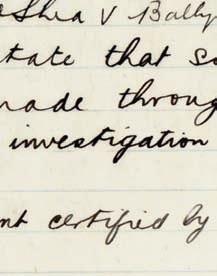 Shea v Bally
state that so
made throug
investigation
nt certified by